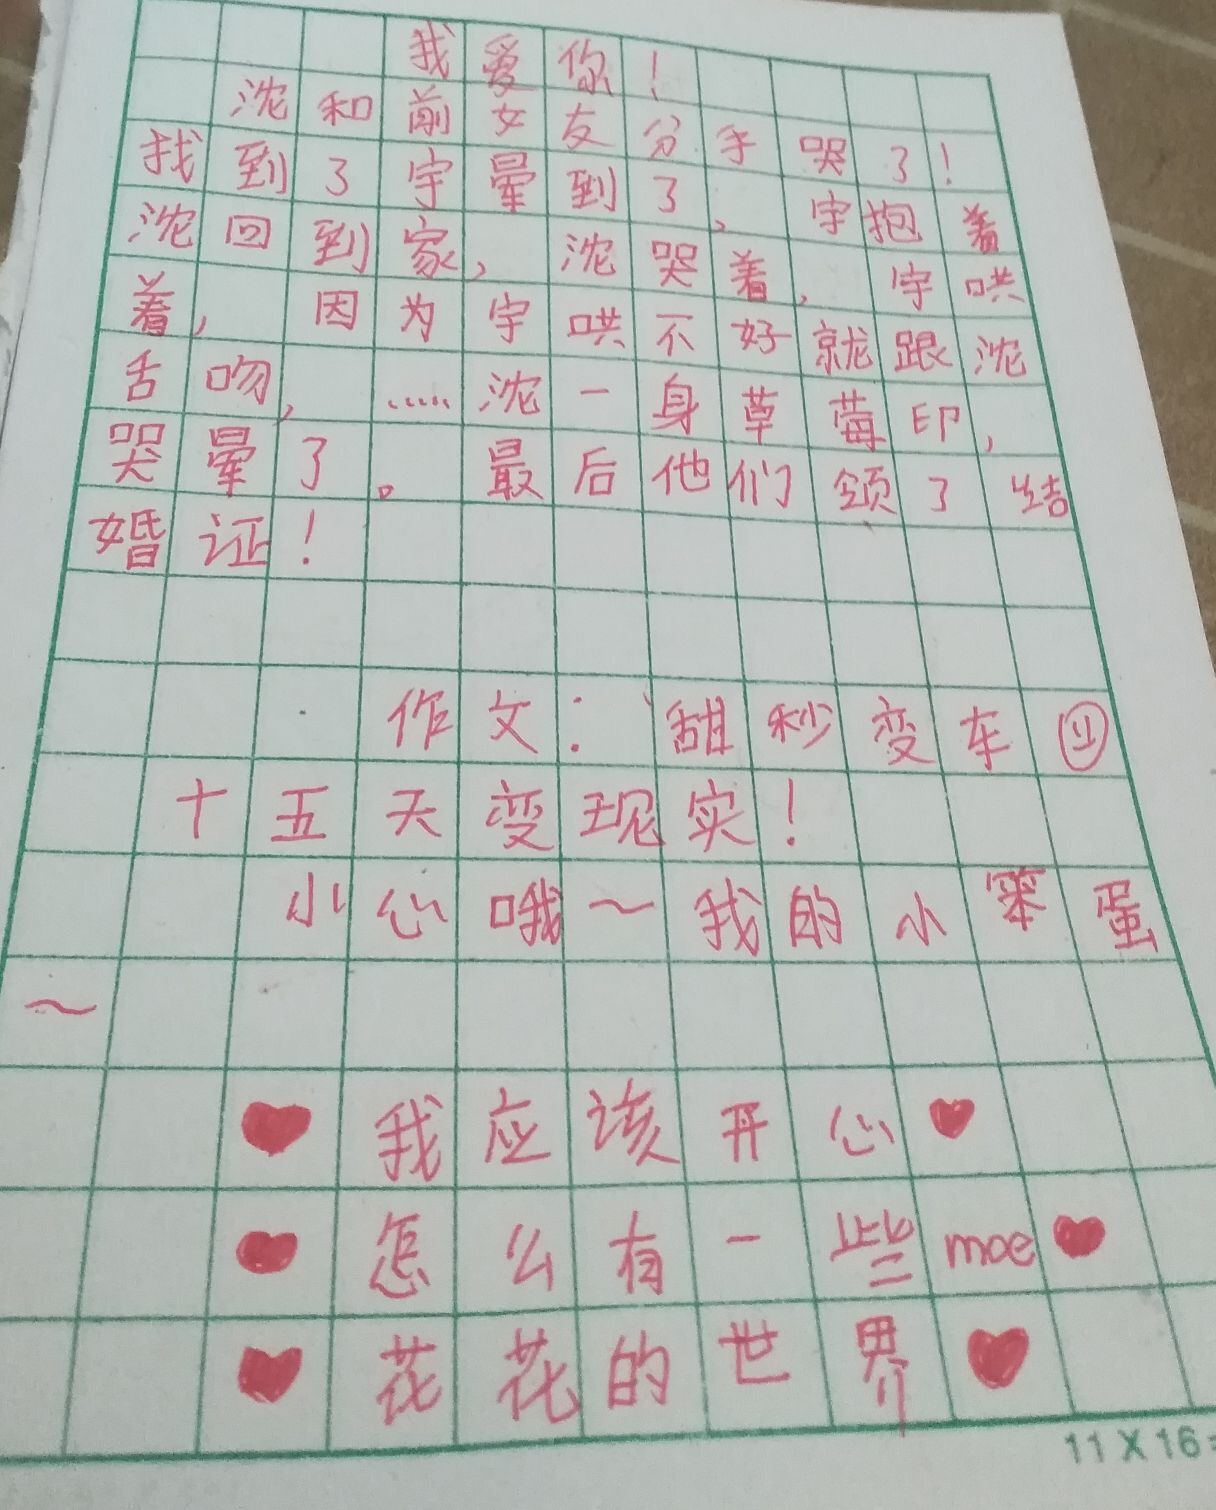 我爱你！
沈和前女友分手哭了！
找到了宇晕到了，宇抱着
沈回到家，沈哭着，宇哄
着，因为宇哄不好就跟沈
舌吻，……沈一身草莓印，
哭晕了。最后他们领了结
婚证！
作文：甜秒变车
十五天变现实！
小心哦～我的小笨蛋
～
♥我应该开心♥
♥怎么有一些moe♥
♥花花的世界♥
11X16=